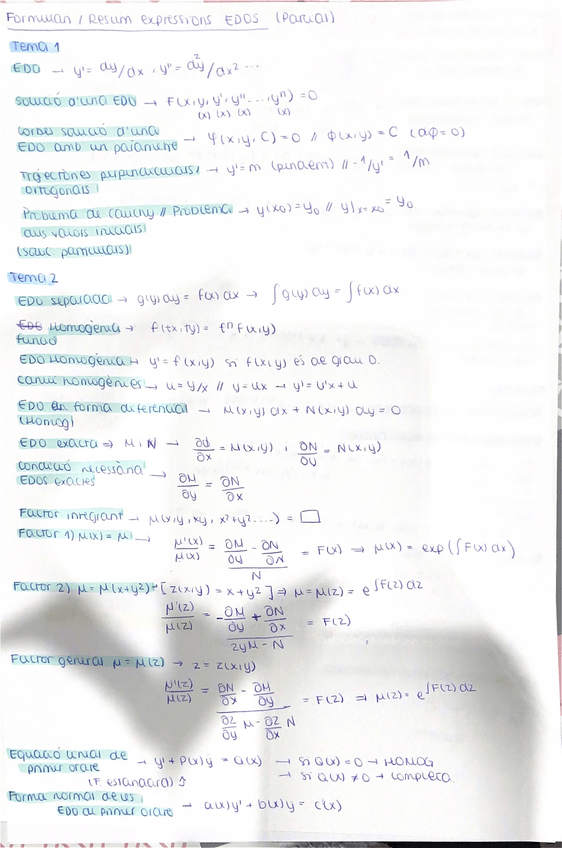 Formulari / Resum expressions EDOS (Parcial)
Tema 1
EDO → y' = dy/dx , y'' = d²y/dx² ...
solució d'una EDO → F(x,y,y',y''...,yⁿ) = 0
(x) (x) (x) (x)
Corbes solució d'una
EDO amb un paràmetre → Ψ(x,y,C) = 0 // Φ(x,y) = C (dΦ = 0)
Trajectòries perpendiculars i → y' = m (pendent) // -1/y' = 1/m
ortogonals
Problema de Cauchy // Problema → y(x₀) = y₀ // y|x=x₀ = y₀
dels valors inicials
(soluc particulars)
Tema 2
EDO separada → g(y) dy = f(x) dx → ∫ g(y) dy = ∫ f(x) dx
EDO Homogènia → f(tx, ty) = tⁿ f(x,y)
funció
EDO Homogènia → y' = f(x,y) si f(x,y) és de grau 0.
canvi homogènies → u = y/x // y = ux → y' = u'x + u
EDO en forma diferencial → M(x,y) dx + N(x,y) dy = 0
(Homog)
EDO exacta ⇒ M i N → ∂d/∂x = M(x,y) i ∂N/∂y = N(x,y)
condició necessària
EDOS exactes → ∂M/∂y = ∂N/∂x
Factor integrant → μ(x,y,xy, x²+y²....) = □
Factor 1) μ(x) = μ → μ'(x)/μ(x) = (∂M/∂y - ∂N/∂N)/N = F(x) ⇒ μ(x) = exp(∫F(x) dx)
Factor 2) μ = μ(x+y²) → [z(x,y) = x+y²] ⇒ μ = μ(z) = e^∫F(z) dz
μ'(z)/μ(z) = (-∂M/∂y + ∂N/∂x)/(2yM - N) = F(z)
Factor general μ = μ(z) → z = z(x,y)
μ'(z)/μ(z) = (∂N/∂x - ∂M/∂y)/(∂z/∂y M - ∂z/∂x N) = F(z) ⇒ μ(z) = e^∫F(z) dz
Equació lineal de → y' + P(x)y = Q(x) → si Q(x) = 0 → HOMOG
primer ordre → si Q(x) ≠ 0 → completa.
(F estandard) ↑
Forma normal de les
EDO de primer ordre → a(x)y' + b(x)y = c(x)